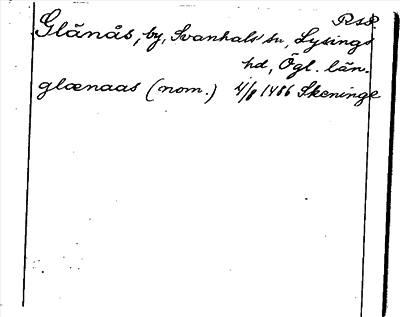 Glänås, by, Svanhals sn, Lysings
hd, Ögl. län.
glænaas (nom.) 4/8 1486 Skeninge